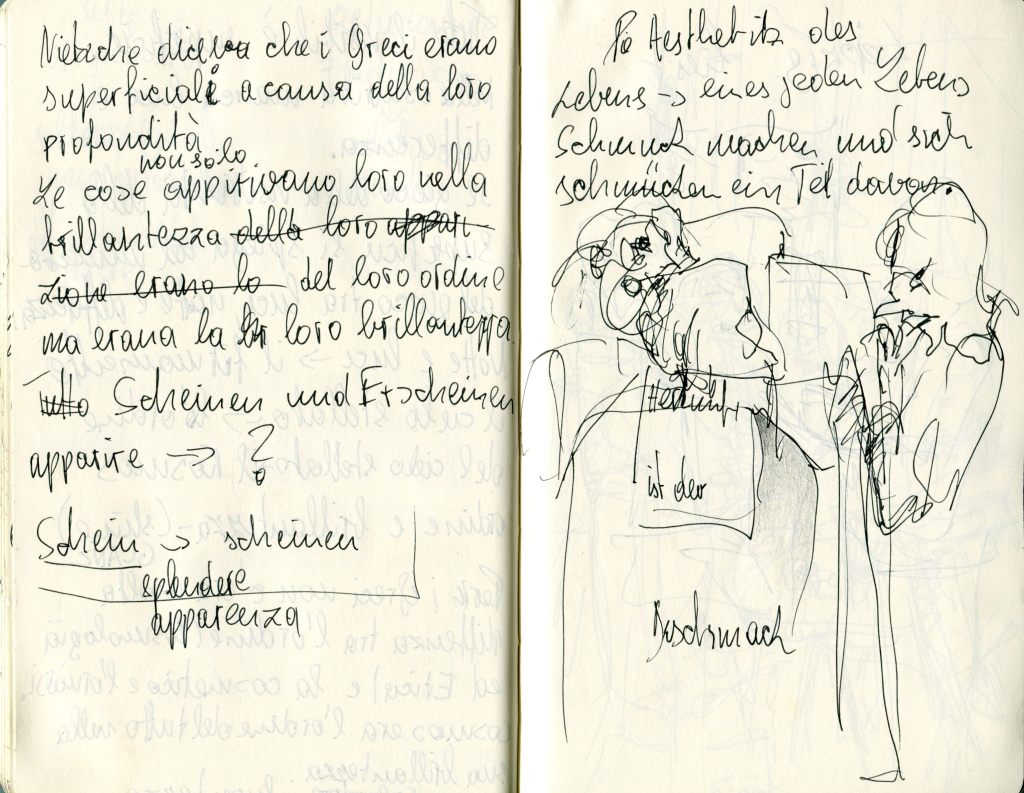 Nietzsche diceva che i Greci erano
superficiali a causa della loro
profondità
non solo.
Le cose apparivano loro nella
brillantezza della loro appari-
zione erano lo del loro ordine
ma erana la br loro brillantezza.
tutto Scheinen und Erscheinen
apparire → ?
Schein → scheinen
splendere
apparenza
Die Aesthetik des
Lebens → eines jeden Lebens
Schmuck machen und sich
schmücken ein Teil davon.
ist der
Geschmack